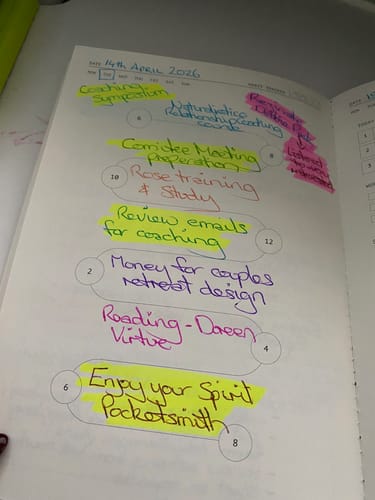 DATE 14th APRIL 2026
MON TUE WED THU FRI SAT SUN
HABIT TRACKER
Coaching
Symposium
Relationship Coaching
course
6
8
Comitee Meeting
preparation,
10
Rose training
& Study
Review emails
for coaching
12
2
Money for couples
retreat design
Reading - Doreen
Virtue
4
6
Enjoy your Spirit
Pocketsmith
8
DATE 15
TODAY
1
2
3